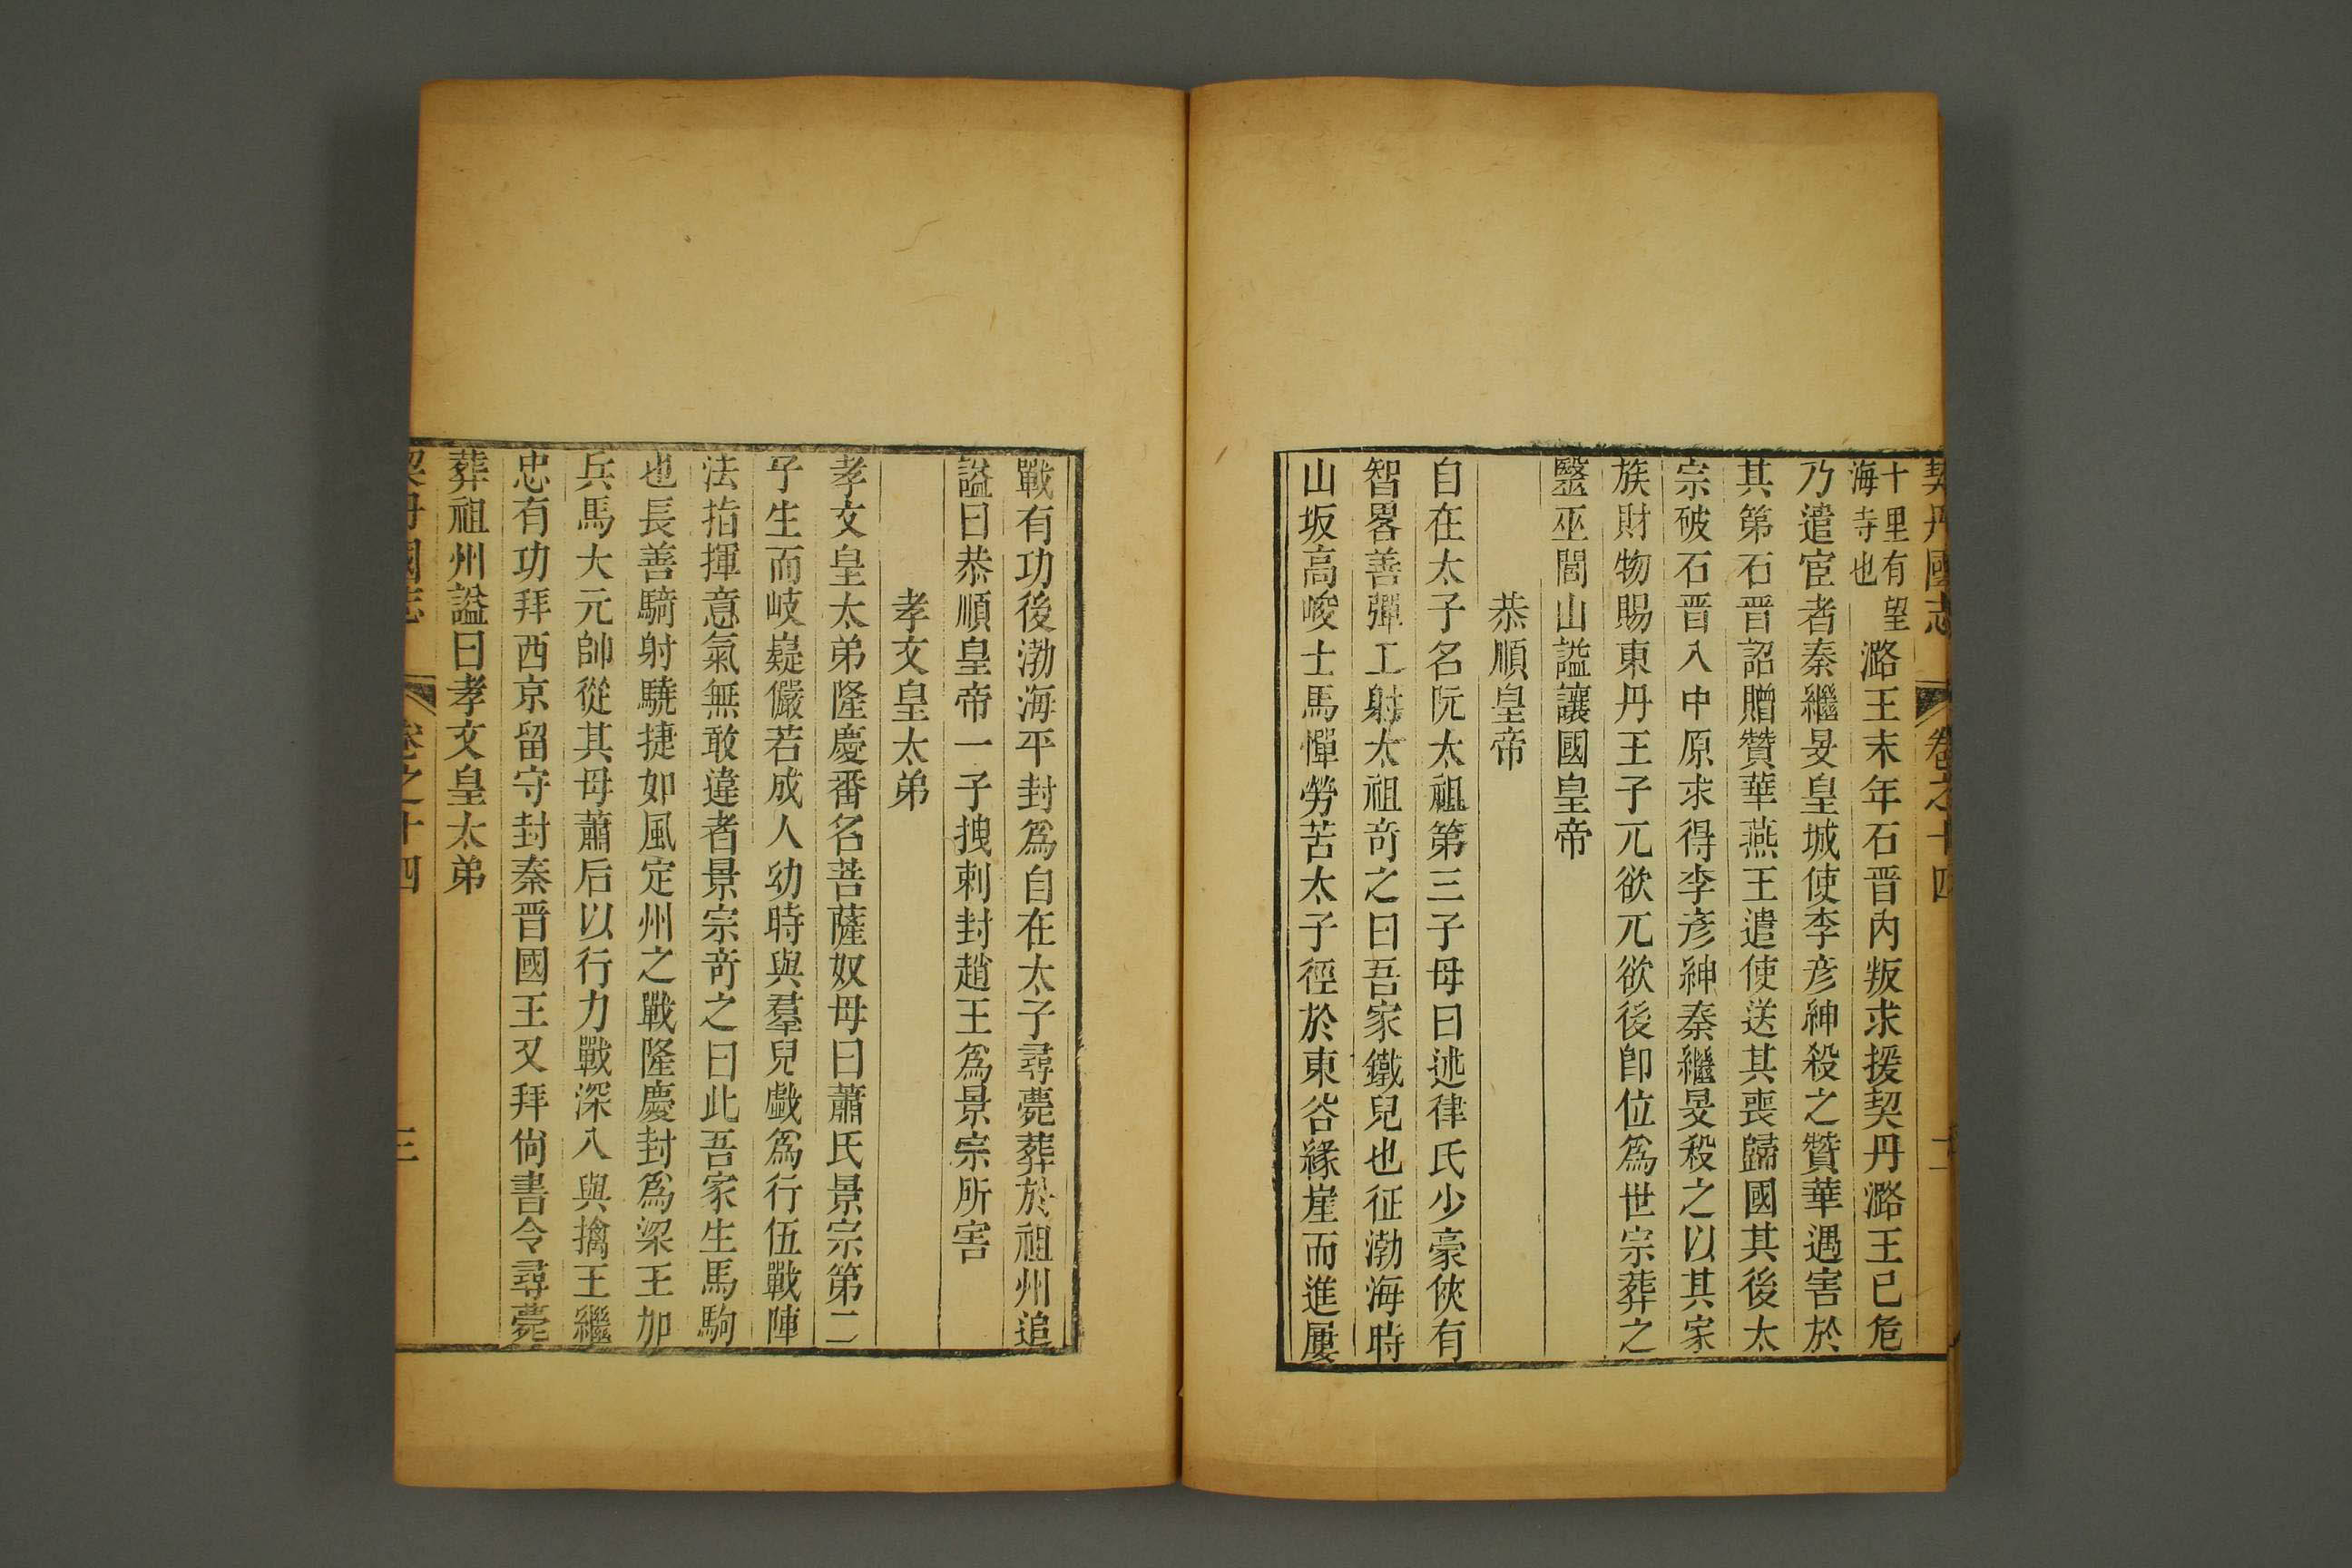 契丹國志 卷之十四 二
十里有望
海寺也
潞王末年石晉內叛求援契丹潞王已危
乃遣宦者秦繼旻皇城使李彥紳殺之贊華遇害於
其第石晉詔贈贊華燕王遣使送其喪歸國其後太
宗破石晉入中原求得李彥紳秦繼旻殺之以其家
族財物賜東丹王子兀欲兀欲後卽位爲世宗葬之
毉巫閭山謚讓國皇帝
恭順皇帝
自在太子名阮太祖第三子母曰述律氏少豪俠有
智畧善彈工射太祖竒之曰吾家鐵兒也征渤海時
山坂高峻士馬憚勞苦太子徑於東谷緣崖而進屢
戰有功後渤海平封爲自在太子尋薨葬於祖州追
謚曰恭順皇帝一子拽剌封趙王爲景宗所害
孝文皇太弟
孝文皇太弟隆慶番名菩薩奴母曰蕭氏景宗第二
子生而岐嶷儼若成人幼時與羣兒戲爲行伍戰陣
法指揮意氣無敢違者景宗竒之曰此吾家生馬駒
也長善騎射驍捷如風定州之戰隆慶封爲梁王加
兵馬大元帥從其母蕭后以行力戰深入與擒王繼
忠有功拜西京留守封秦晉國王又拜尙書令尋薨
葬祖州謚曰孝文皇太弟
契丹國志 卷之十四 三